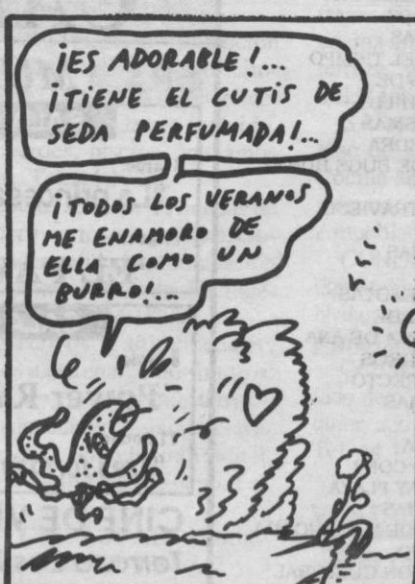 ¡ES ADORABLE!...
¡TIENE EL CUTIS DE
SEDA PERFUMADA!..
¡TODOS LOS VERANOS
ME ENAMORO DE
ELLA COMO UN
BURRO!...